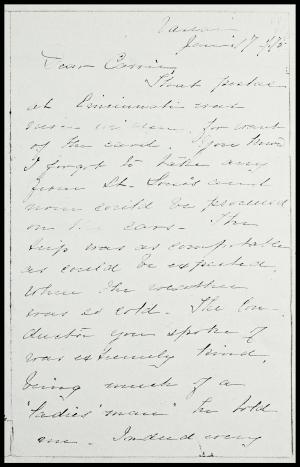 Dear Carrie
That postal
at Cincinnati was
never written, for want
of the card. You know
I forgot to take any
from St. Louis and
none could be procured
on the cars. The
trip was as comfortable
as could be expected,
when the weather
was so cold. The Con-
ductor you spoke of
was extremely kind,
being much of a
"ladies' man" he told
me. Indeed every